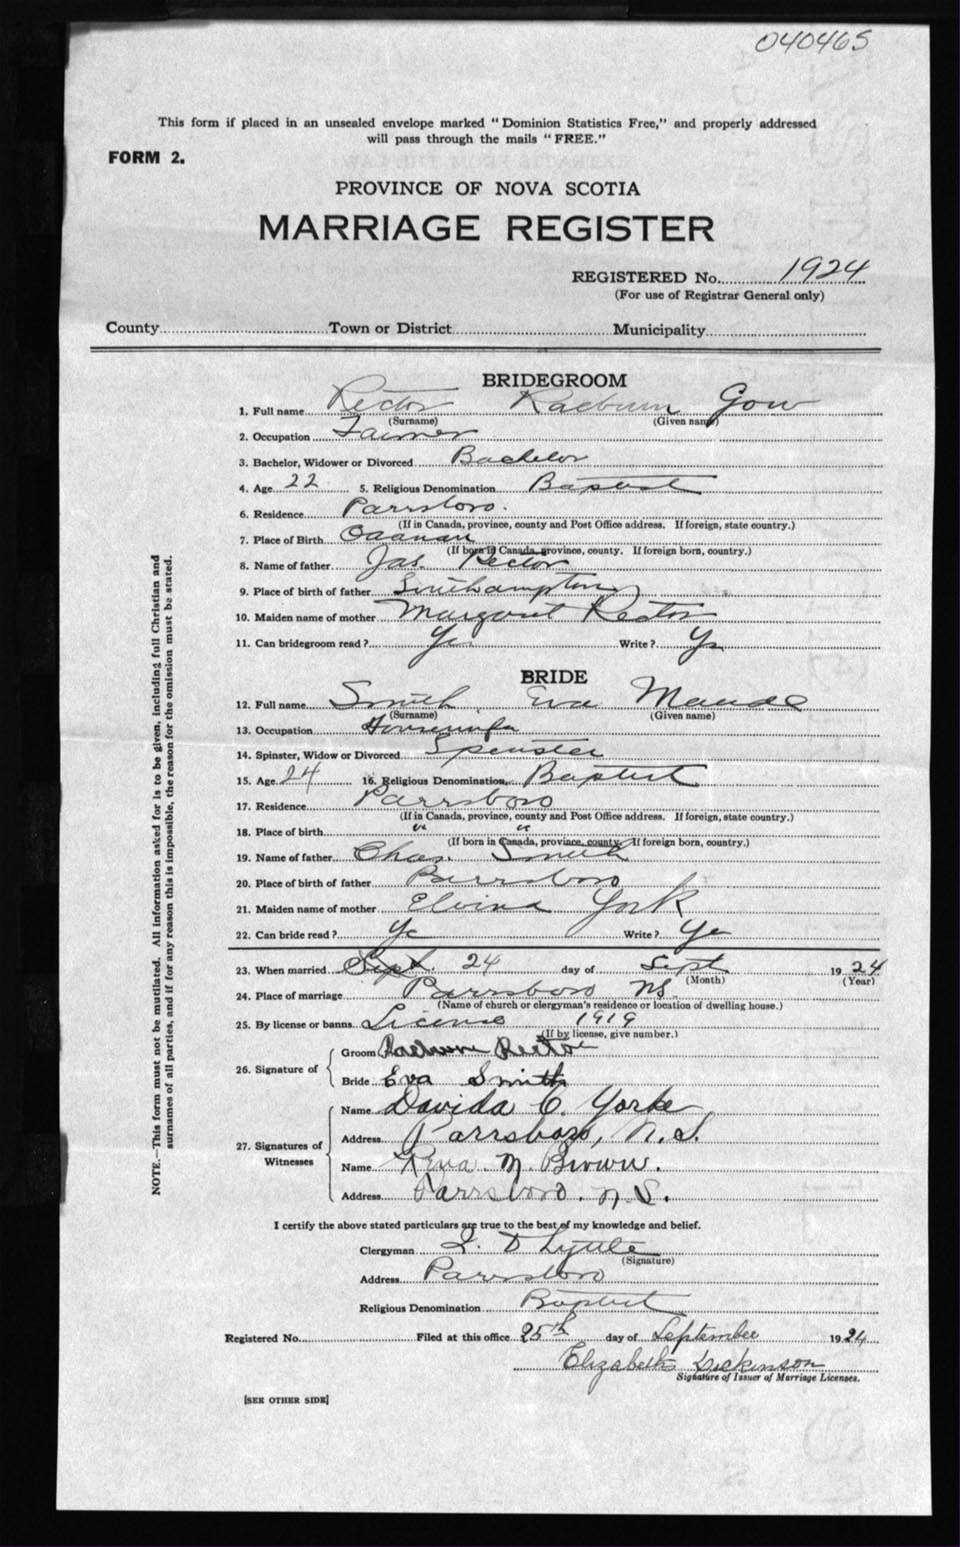 040465
This form if placed in an unsealed envelope marked "Dominion Statistics Free," and properly addressed
will pass through the mails "FREE."
FORM 2.
PROVINCE OF NOVA SCOTIA
MARRIAGE REGISTER
REGISTERED No. 1924
(For use of Registrar General only)
County Town or District Municipality
BRIDEGROOM
1. Full name Rector Raeburn Gow
(Surname) (Given name)
2. Occupation Farmer
3. Bachelor, Widower or Divorced Bachelor
4. Age 22 5. Religious Denomination Baptist
6. Residence Parrsboro.
(If in Canada, province, county and Post Office address. If foreign, state country.)
7. Place of Birth Caanan
(If born in Canada, province, county. If foreign born, country.)
8. Name of father Jas. Rector
9. Place of birth of father Southampton
10. Maiden name of mother Margaret Rector
11. Can bridegroom read? Yes Write? Yes
BRIDE
12. Full name Smith Eva Maude
(Surname) (Given name)
13. Occupation Housewife
14. Spinster, Widow or Divorced Spenster
15. Age 24 16. Religious Denomination Baptist
17. Residence Parrsboro
(If in Canada, province, county and Post Office address. If foreign, state country.)
18. Place of birth " "
(If born in Canada, province, county. If foreign born, country.)
19. Name of father Chas. Smith
20. Place of birth of father Parrsboro
21. Maiden name of mother Elvina York
22. Can bride read? Yes Write? Yes
23. When married Sept. 24 day of Sept 1924
(Month) (Year)
24. Place of marriage Parrsboro NS.
(Name of church or clergyman's residence or location of dwelling house.)
25. By license or banns License 1919
(If by license, give number.)
26. Signature of Groom Raeburn Rector
Bride Eva Smith
27. Signatures of Witnesses Name Davida C. Yorke
Address Parrsboro, N.S.
Name Rena M. Brown.
Address Parrsboro. N.S.
I certify the above stated particulars are true to the best of my knowledge and belief.
Clergyman D Lyttle
(Signature)
Address Parrsboro
Religious Denomination Baptist
Registered No. Filed at this office 25th day of September 1924
Elizabeth Dickinson
Signature of Issuer of Marriage Licenses.
[SEE OTHER SIDE]
NOTE.—This form must not be mutilated. All information asked for is to be given, including full Christian and
surnames of all parties, and if for any reason this is impossible, the reason for the omission must be stated.